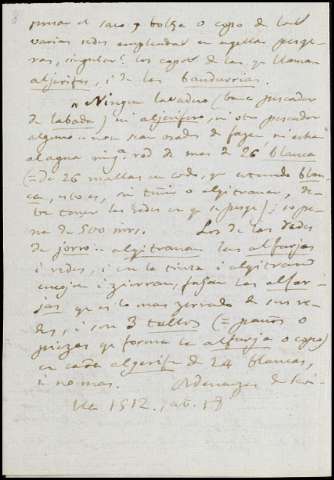 el saco y bolsa o copo de las
varias redes empleadas en aquellas pesque-
ras, singular.te los copos de las q llaman
aljerifes, i de las bandurrias.
"Ningun labadero (barco pescador
de labada) ni aljerifero, ni otro pescador
alguno non sean osados de facer ni echar
al agua ning.a red de mas de 26 blanca
(= de 26 mallas en codo, y estando blan-
ca, no es, sin tinta o alquitranar, de-
be tener las redes en q pesque); so pe-
na de 500 mrs. Los de las redes
de jorro alquitranan las alfarjas
i redes, i en la tinta i alquitran
encojen i zierran, fagan las alfar-
jas q es lo mas zerrado de sus re-
des, i son 3 tallos (= paños o
piezas que forman la alfarja o copo)
en cada algerife de 24 blancas,
i no mas. Ordenanzas de Sevi-
lla 1512,